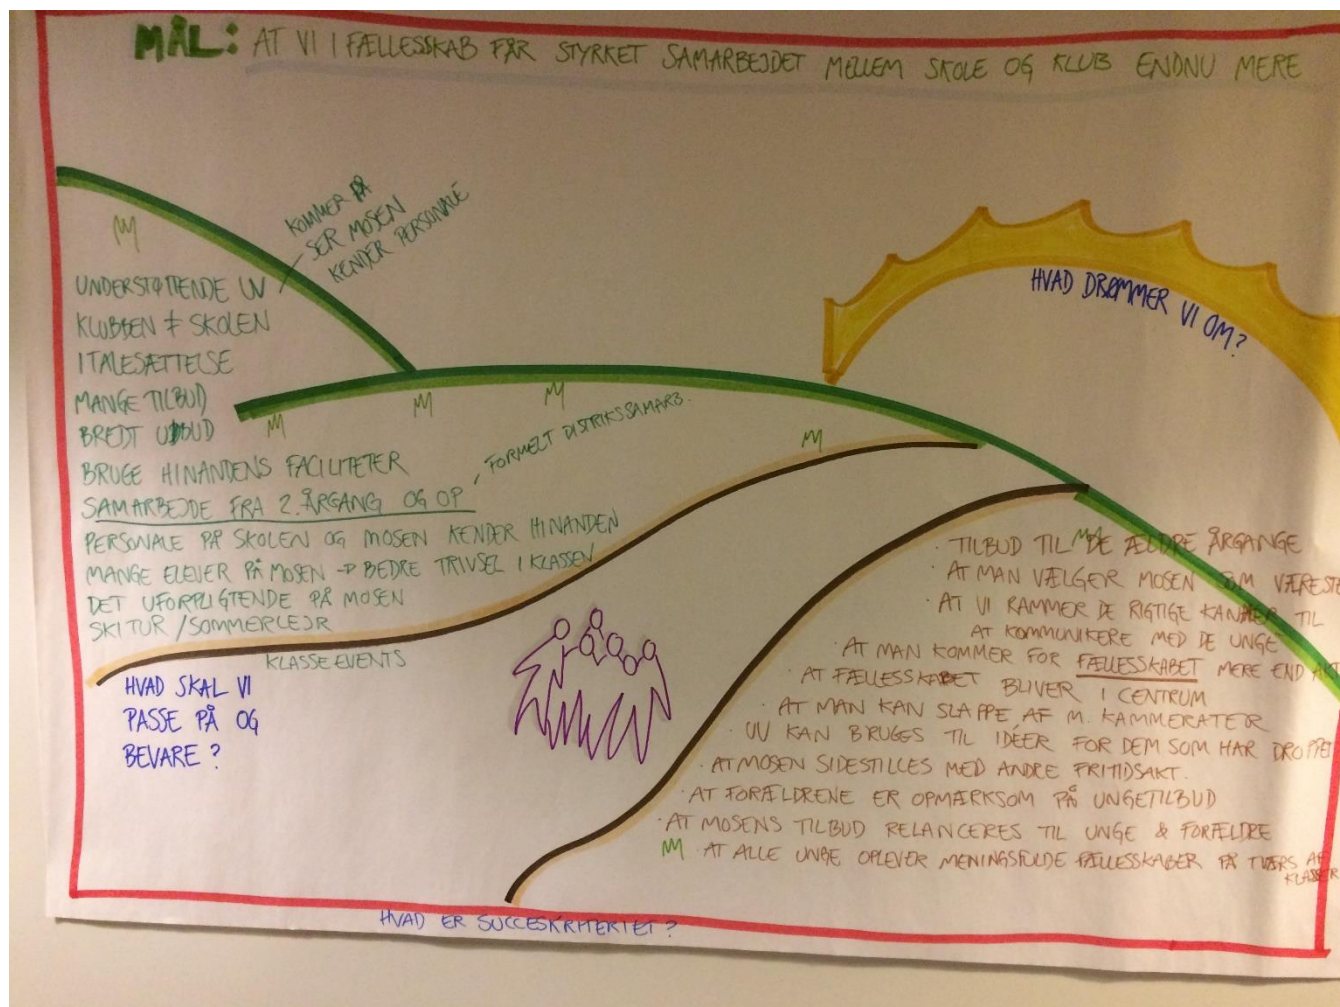 MÅL: AT VI I FÆLLESSKAB FÅR STYRKET SAMARBEJDET MELLEM SKOLE OG KLUB ENDNU MERE
KOMMER PÅ
SER MOSEN
KENDER PERSONALE
UNDERSTØTTENDE UV
KLUBBEN ≠ SKOLEN
ITALESÆTTELSE
MANGE TILBUD
BREDT UDBUD
BRUGE HINANDENS FACILITETER
SAMARBEJDE FRA 2. ÅRGANG OG OP
FORMELT DISTRIKSSAMARB.
PERSONALE PÅ SKOLEN OG MOSEN KENDER HINANDEN
MANGE ELEVER PÅ MOSEN → BEDRE TRIVSEL I KLASSEN
DET UFORPLIGTENDE PÅ MOSEN
SKITUR / SOMMERLEJR
KLASSEEVENTS
HVAD SKAL VI
PASSE PÅ OG
BEVARE ?
HVAD DRØMMER VI OM?
· TILBUD TIL DE ÆLDRE ÅRGANGE
· AT MAN VÆLGER MOSEN SOM VÆRESTE
· AT VI RAMMER DE RIGTIGE KANALER TIL
AT KOMMUNIKERE MED DE UNGE
· AT MAN KOMMER FOR FÆLLESSKABET MERE END
· AT FÆLLESSKABET BLIVER I CENTRUM
· AT MAN KAN SLAPPE AF M. KAMMERATER
· UV KAN BRUGES TIL IDÉER FOR DEM SOM HAR DROPPET
· AT MOSEN SIDESTILLES MED ANDRE FRITIDSAKT.
· AT FORÆLDRENE ER OPMÆRKSOM PÅ UNGETILBUD
· AT MOSENS TILBUD RELANCERES TIL UNGE & FORÆLDRE
AT ALLE UNGE OPLEVER MENINGSFULDE FÆLLESSKABER PÅ TVÆRS AF
KLASSER
HVAD ER SUCCESKRITERIET ?